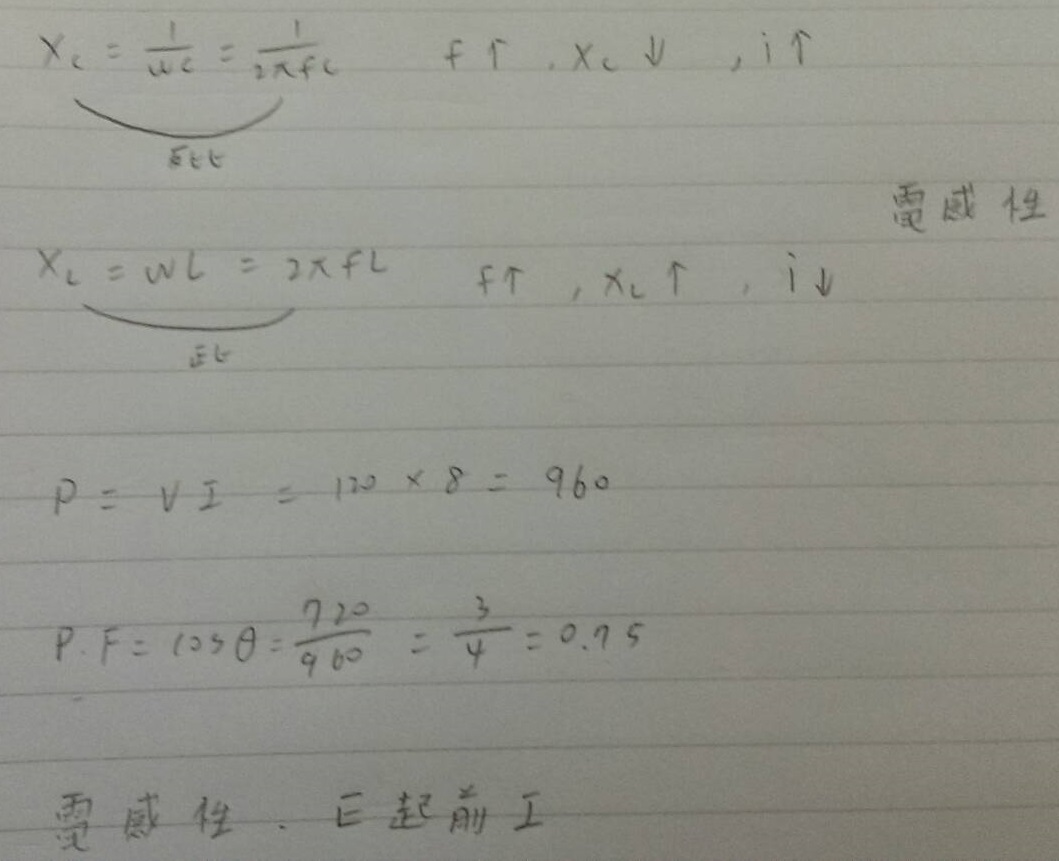 Xc = 1/wc = 1/2πfc f↑ . Xc ↓ , i↑
反比
電感性
XL = WL = 2πfL f↑ , XL ↑ , i↓
正比
P = VI = 120 × 8 = 960
P.F = cosθ = 720/960 = 3/4 = 0.75
電感性 . E起前I